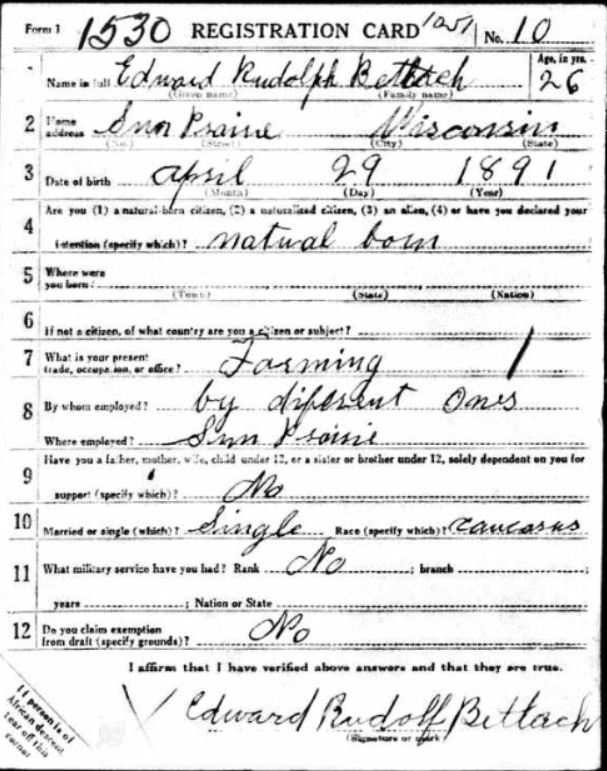 Form 1 1530 REGISTRATION CARD 1051 No. 10
Age, in yrs.
1 Name in full Edward Rudolph Bettach 26
(Given name) (Family name)
2 Home address Sun Prairie Wisconsin
(No.) (Street) (City) (State)
3 Date of birth April 29 1891
(Month) (Day) (Year)
4 Are you (1) a natural-born citizen, (2) a naturalized citizen, (3) an alien, (4) or have you declared your
intention (specify which)? natural born
5 Where were you born?
(Town) (State) (Nation)
6 If not a citizen, of what country are you a citizen or subject?
7 What is your present trade, occupation, or office? Farming 1
8 By whom employed? by diferent Ones
Where employed? Sun Prairie
9 Have you a father, mother, wife, child under 12, or a sister or brother under 12, solely dependent on you for
support (specify which)? No
10 Married or single (which)? Single Race (specify which)? Caucasus
11 What military service have you had? Rank No ; branch ;
years ; Nation or State
12 Do you claim exemption from draft (specify grounds)? No
I affirm that I have verified above answers and that they are true.
Edward Rudolf Bettach
(Signature or mark)
If person is of
African descent,
tear off this
corner